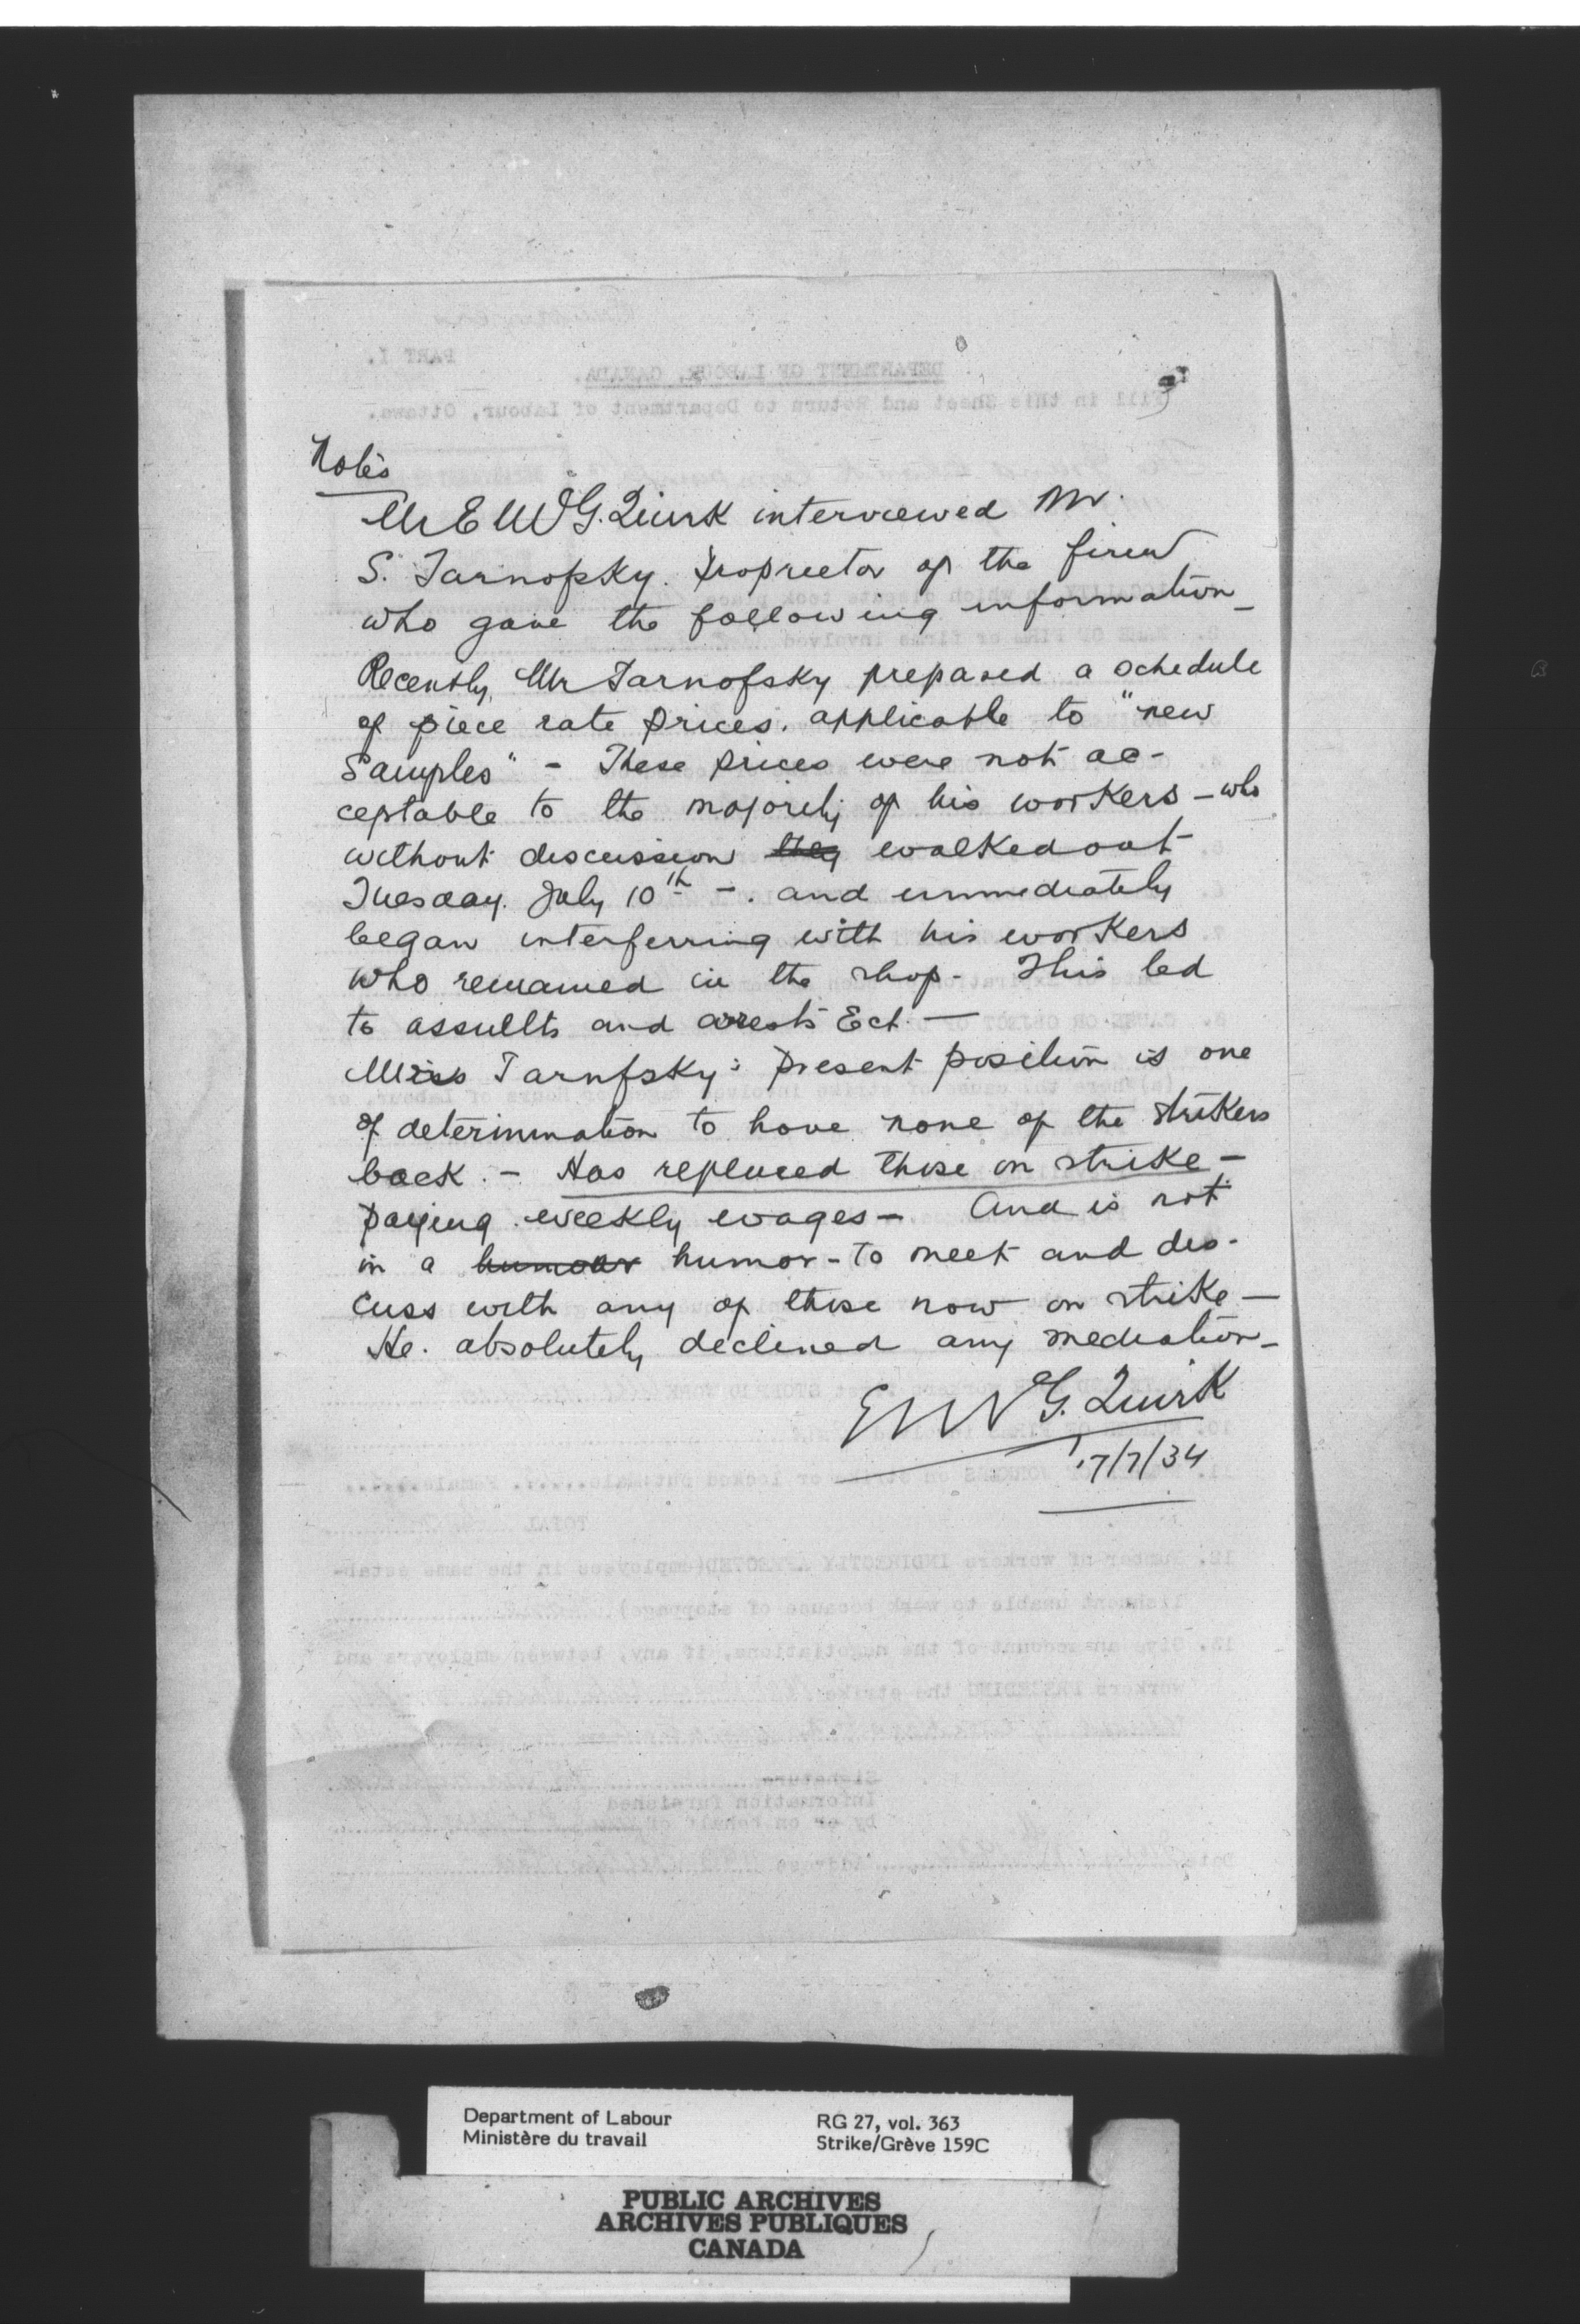 Notes
Mr E W G. Quirk interviewed Mr.
S. Tarnofsky. Proprietor of the firm
who gave the following information_
Recently, Mr Tarnofsky prepared a schedule
of piece rate prices. applicable to "new
Samples" - These prices were not ac-
ceptable to the majority of his workers - who
without discussion they walked out
Tuesday. July 10th -. and immediately
began interferring with his workers
who remained in the shop - This led
to assullts and arrests Ect. —
Miss Tarnfsky's present position is one
of determination to have none of the strikers
back. - Has replaced those on strike -
paying weekly wages - And is not
in a humour humor - to meet and dis-
cuss with any of those now on strike —
He. absolutely declined any mediation_
E W G. Quirk
17/7/34
Department of Labour
Ministère du travail
RG 27, vol. 363
Strike/Grève 159C
PUBLIC ARCHIVES
ARCHIVES PUBLIQUES
CANADA